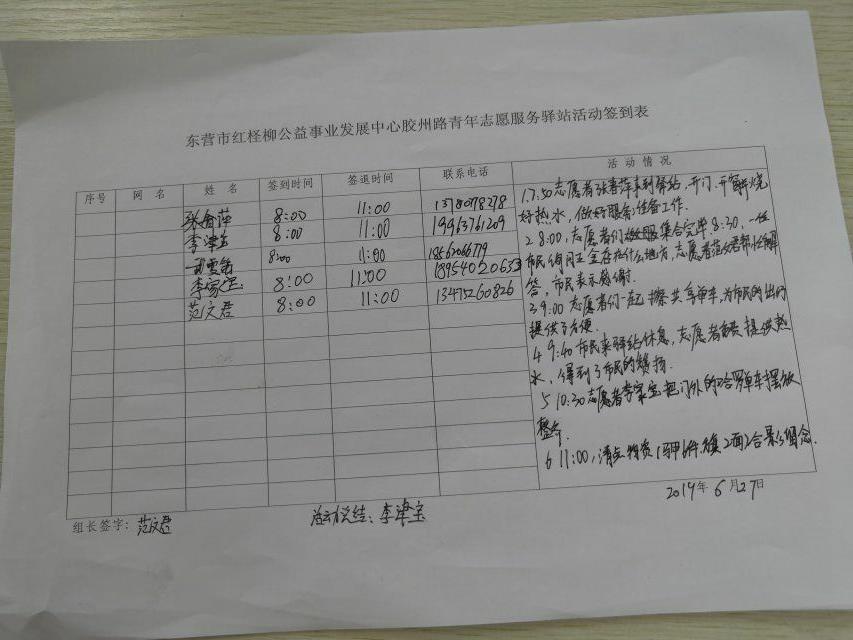 东营市红柽柳公益事业发展中心胶州路青年志愿服务驿站活动签到表
序号 网名 姓名 签到时间 签退时间 联系电话 活动情况
张春萍 8:00 11:00
李津宝 8:00 11:00 19963761209
8:00 11:00
李家宝 8:00 11:00
范文君 8:00 11:00 13475260826
1.7:50志愿者张春萍来到驿站,开门、开窗,烧
好热水,做好服务准备工作。
2 8:00,志愿者们集合完毕,8:30,一位
市民询问在什么地方,志愿者范文君帮忙解
答,市民表示感谢。
3 9:00志愿者们一起擦共享单车,为市民的出行
提供了方便。
4 9:40市民来驿站休息,志愿者提供热
水,得到了市民的赞扬。
5 10:30志愿者李家宝把门外的哈罗单车摆放
整齐.
6 11:00,清点物资,马甲6件,旗2面,合影留念.
2019年6月27日
组长签字:范文君 活动总结:李津宝